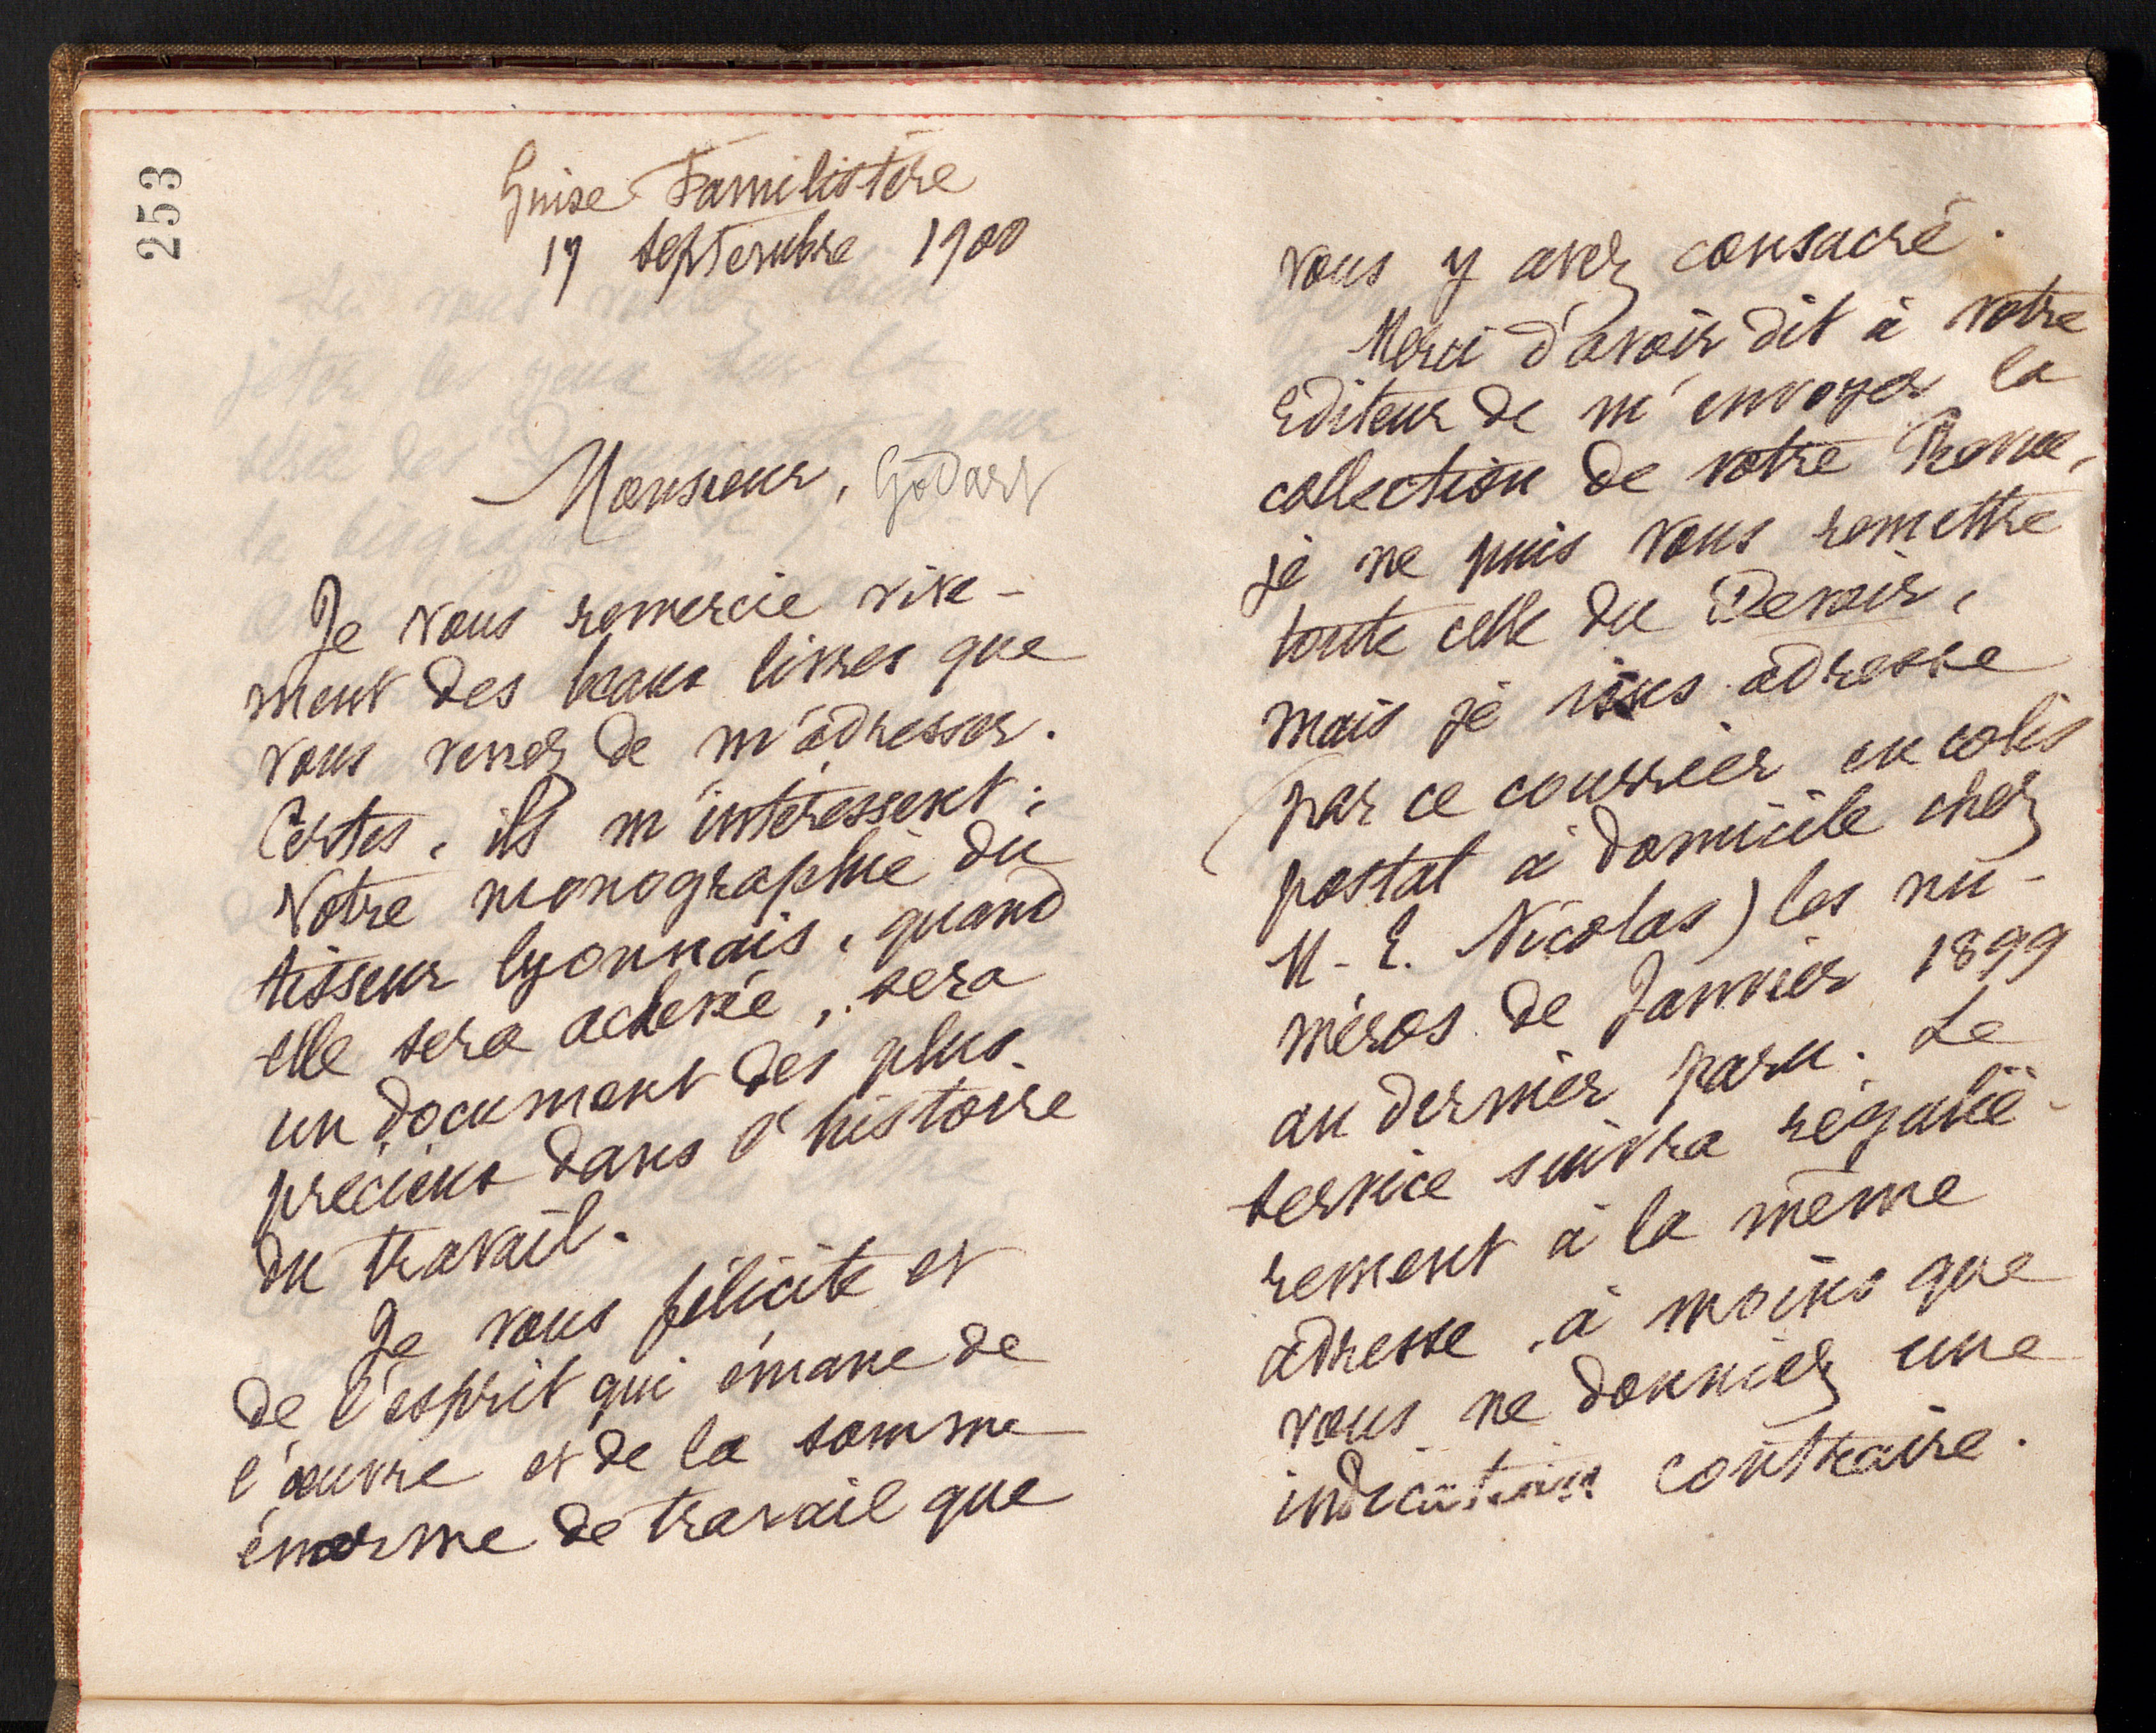 253
Guise Familistère
19 septembre 1900
Monsieur, Godart
Je vous remercie vive-
ment des beaux livres que
vous venez de m'adresser.
Certes, ils m'intéressent;
Votre monographie du
tisseur lyonnais, quand
elle sera achevée, sera
un document des plus
précieux dans l'histoire
du travail.
Je vous félicite et
de l'esprit qui émane de
l'œuvre et de la somme
énorme de travail que
vous y avez consacré.
Merci d'avoir dit à votre
Editeur de m'envoyer la
collection de votre Revue,
je ne puis vous remettre
toute celle du Devoir,
mais je vous adresse
(par ce courrier en colis
postal à domicile chez
M. E. Nicolas) les nu-
méros de Janvier 1899
au dernier paru. Le
service suivra réguliè-
rement à la même
adresse, à moins que
vous ne donniez une
indication contraire.